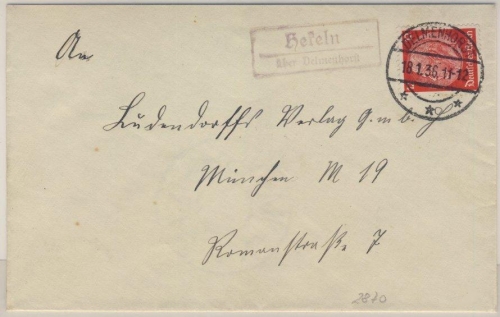 An
Hekeln
über Delmenhorst
DELMENHORST
18.1.36.11-12
Deutsches Reich
Ludendorffs Verlag G.m.b.H
München M 19
Romanstraße 7
2870